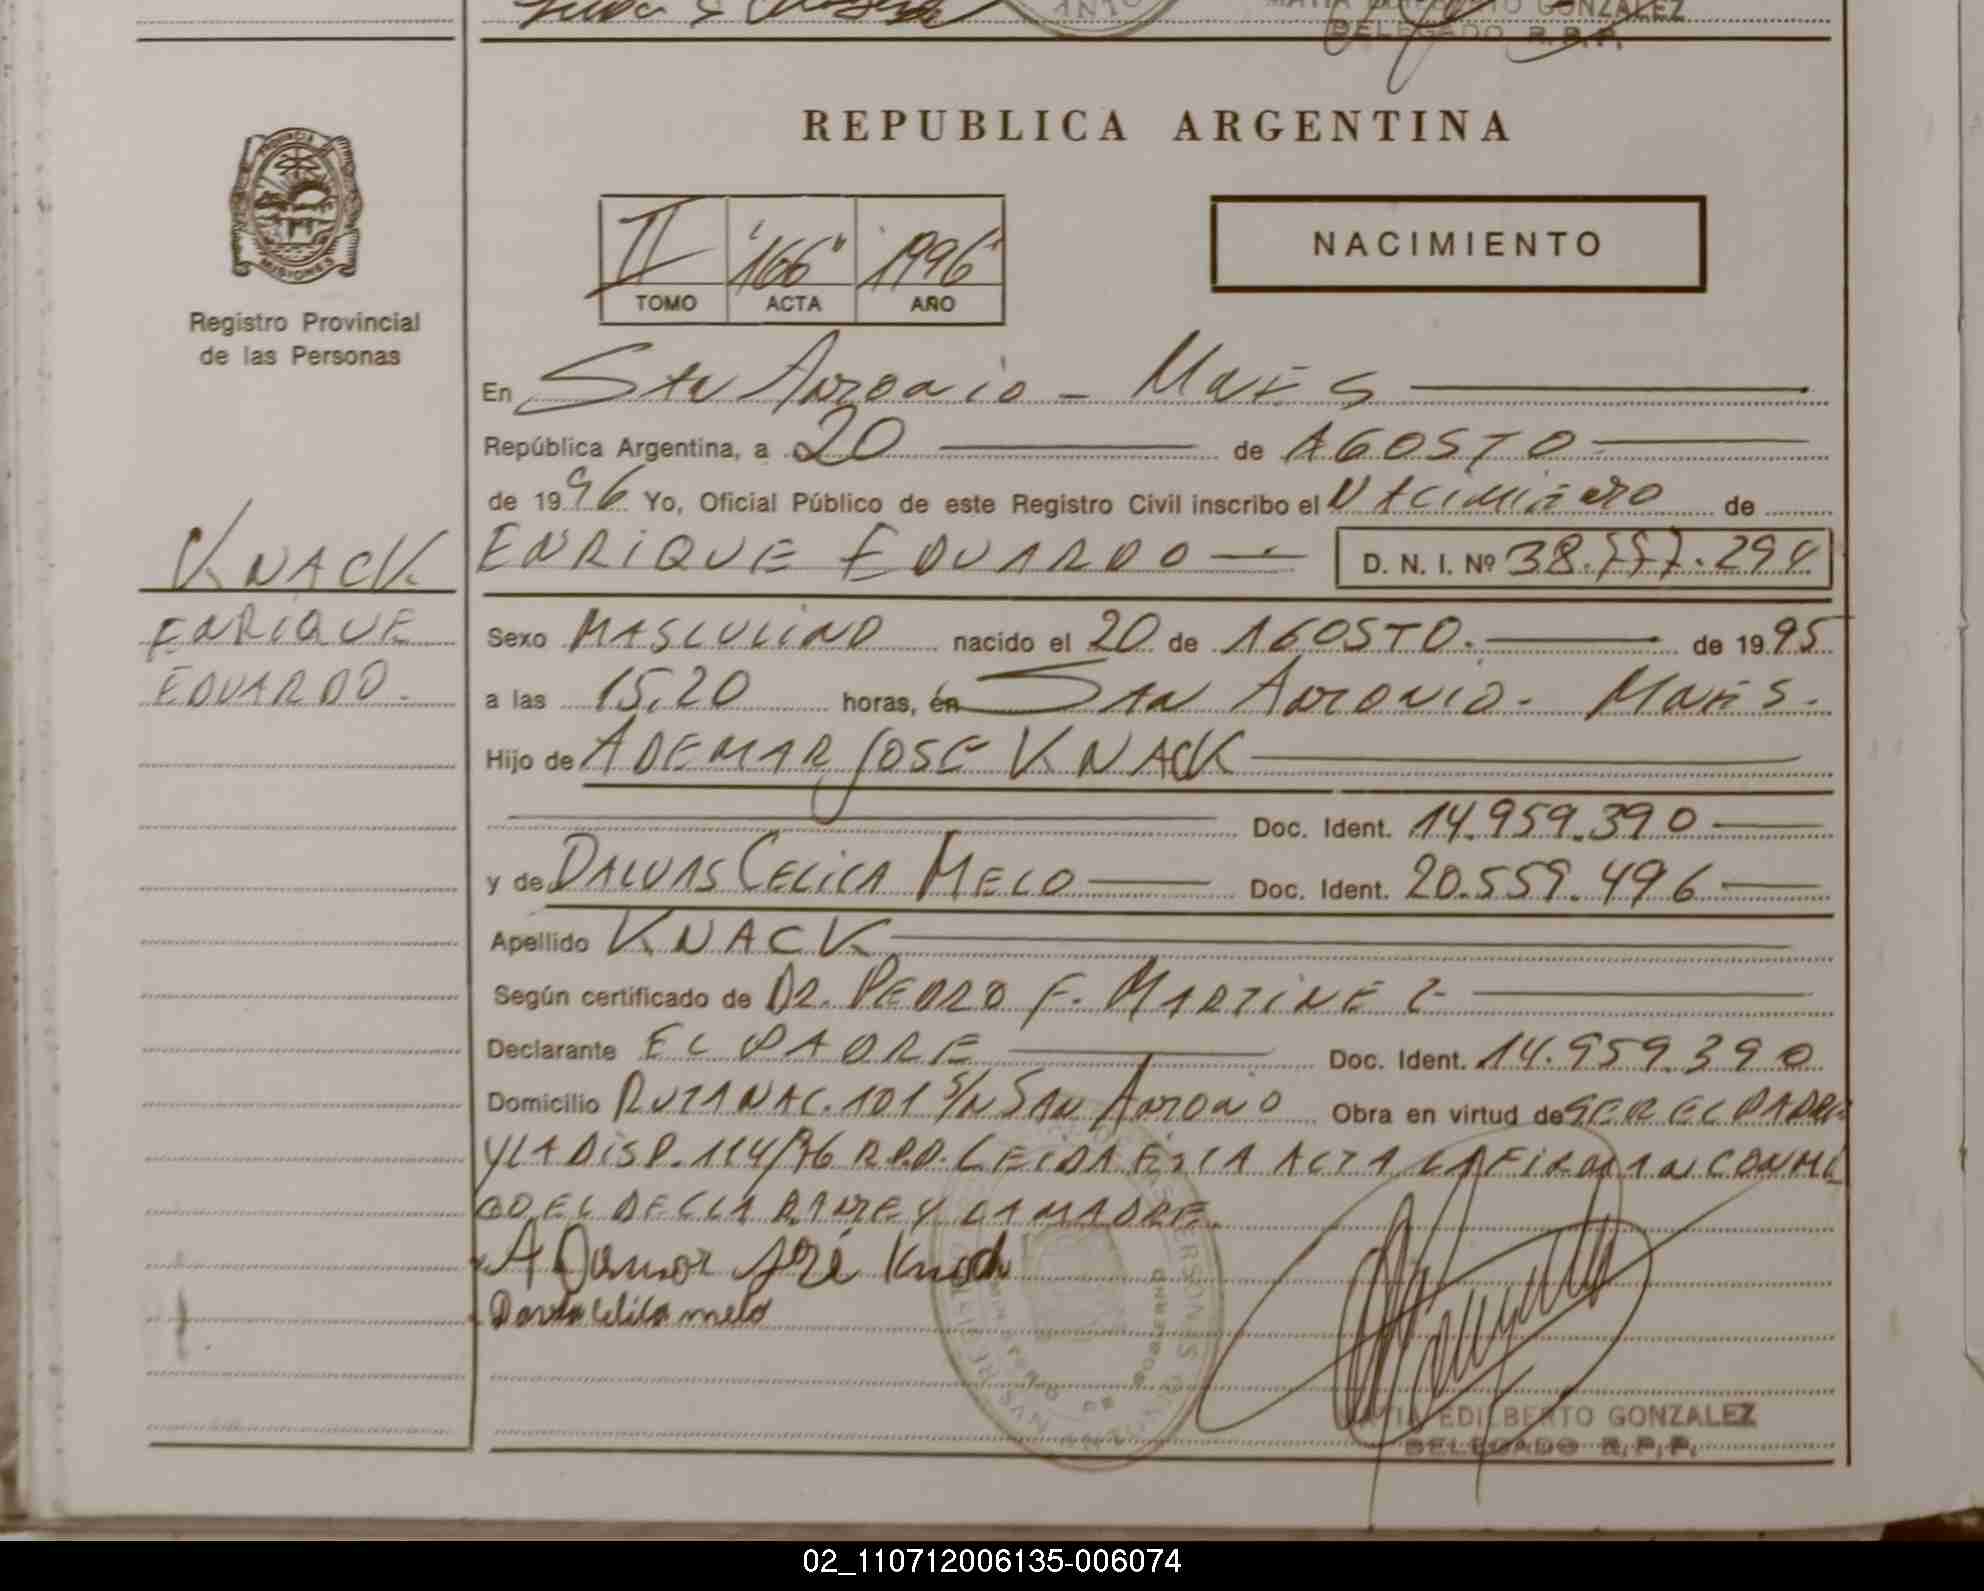 GONZALEZ
DELEGADO R.P.P.
REPUBLICA ARGENTINA
PROVINCIA DE
MISIONES
Registro Provincial
de las Personas
II "166" "1996"
TOMO ACTA AÑO
NACIMIENTO
En San Antonio - Mnes
República Argentina, a 20 de AGOSTO
de 1996 Yo, Oficial Público de este Registro Civil inscribo el NACIMIENTO de
KNACK
ENRIQUE EDUARDO D. N. I. Nº 38.777.294
ENRIQUE
EDUARDO.
Sexo MASCULINO nacido el 20 de AGOSTO. de 1995
a las 15,20 horas, en SAN ANTONIO - Mnes.
Hijo de ADEMAR JOSE KNACK
Doc. Ident. 14.959.390
y de DALVAS CELICA MELO Doc. Ident. 20.559.496
Apellido KNACK
Según certificado de DR. PEDRO F. MARTINEZ
Declarante EL PADRE Doc. Ident. 14.959.390
Domicilio RUTA NAC. 101 S/N SAN ANTONIO Obra en virtud de SER EL PADRE
Y LA DISP. 114/96 R.P.P. LEIDA ESTA ACTA LA FIRMAN CONMI
GO EL DECLARANTE Y LA MADRE.
Ademar José Knack
Celica melo
EDILBERTO GONZALEZ
DELEGADO R.P.P.
02_110712006135-006074